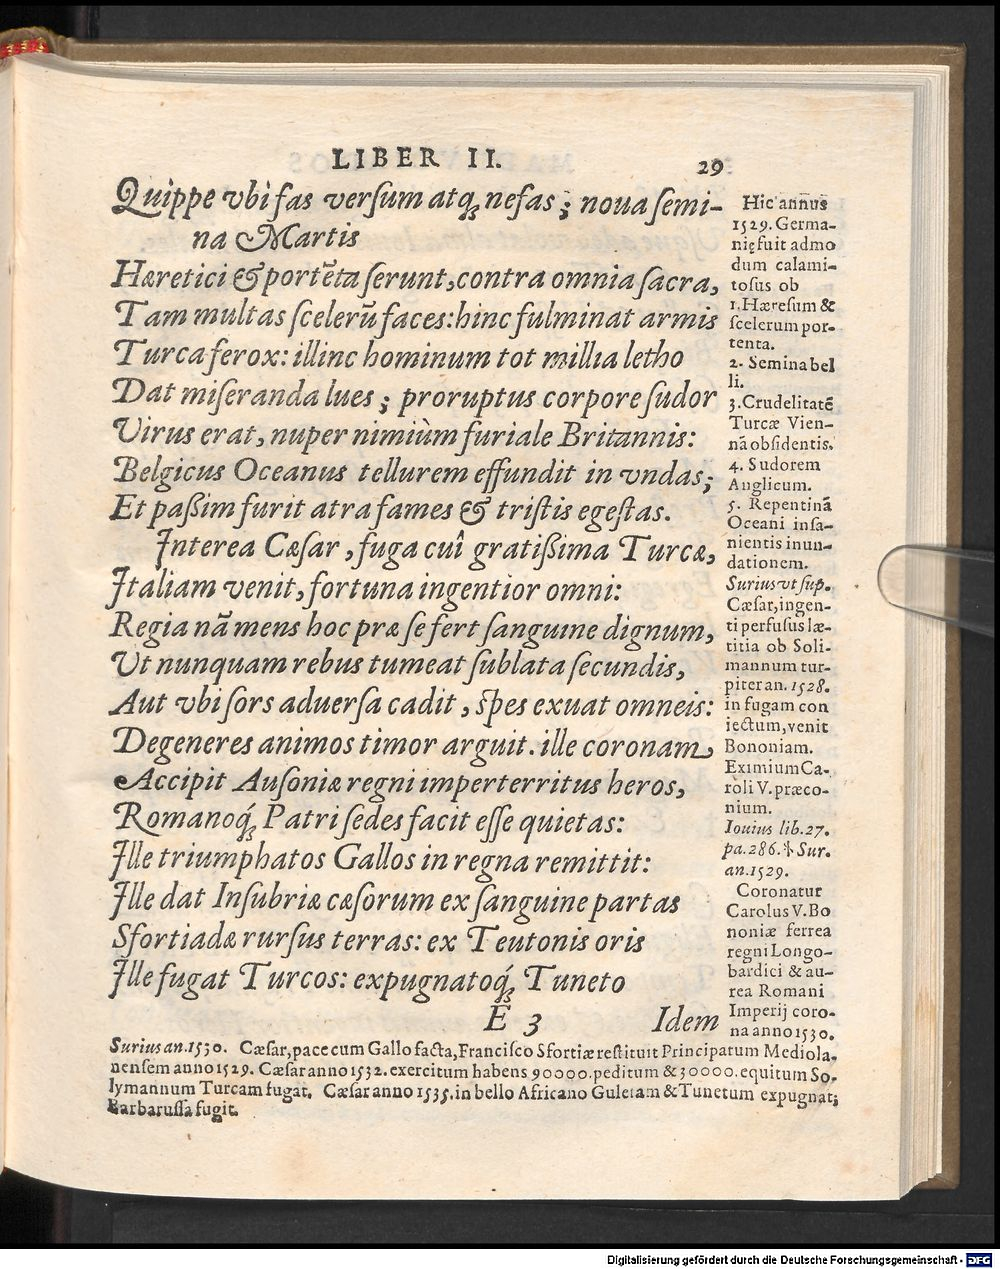 LIBER II. 29
Quippe vbi fas versum atq; nefas; noua semi-
na Martis
Hæretici & portẽta serunt, contra omnia sacra,
Tam multas scelerũ faces: hinc fulminat armis
Turca ferox: illinc hominum tot millia letho
Dat miseranda lues; proruptus corpore sudor
Virus erat, nuper nimiùm furiale Britannis:
Belgicus Oceanus tellurem effundit in vndas;
Et paßim furit atra fames & tristis egestas.
Interea Cæsar, fuga cui gratißima Turcæ,
Italiam venit, fortuna ingentior omni:
Regia nã mens hoc præ se fert sanguine dignum,
Vt nunquam rebus tumeat sublata secundis,
Aut vbi sors aduersa cadit, spes exuat omneis:
Degeneres animos timor arguit. ille coronam
Accipit Ausoniæ regni imperterritus heros,
Romanoq́; Patri sedes facit esse quietas:
Ille triumphatos Gallos in regna remittit:
Ille dat Insubriæ cæsorum ex sanguine partas
Sfortiadæ rursus terras: ex Teutonis oris
Ille fugat Turcos: expugnatoq́; Tuneto
E 3 Idem
Hic annus
1529. Germa-
nię fuit admo
dum calami-
tosus ob
1. Hæresum &
scelerum por-
tenta.
2. Semina bel
li.
3. Crudelitatẽ
Turcæ Vien-
nã obsidentis.
4. Sudorem
Anglicum.
5. Repentinã
Oceani insa-
nientis inun-
dationem.
Surius vt sup.
Cæsar, ingen-
ti perfusus læ-
titia ob Soli-
mannum tur-
piter an. 1528.
in fugam con
iectum, venit
Bononiam.
Eximium Ca-
roli V. præco-
nium.
Iouius lib. 27.
pa. 286. & Sur.
an. 1529.
Coronatur
Carolus V. Bo
noniæ ferrea
regni Longo-
bardici & au-
rea Romani
Imperij coro-
na anno 1530.
Surius an. 1530. Cæsar, pace cum Gallo facta, Francisco Sfortiæ restituit Principatum Mediola-
nensem anno 1529. Cæsar anno 1532. exercitum habens 90000. peditum & 30000. equitum So-
lymannum Turcam fugat. Cæsar anno 1535. in bello Africano Guletam & Tunetum expugnat;
Barbarussa fugit.
Digitalisierung gefördert durch die Deutsche Forschungsgemeinschaft - DFG